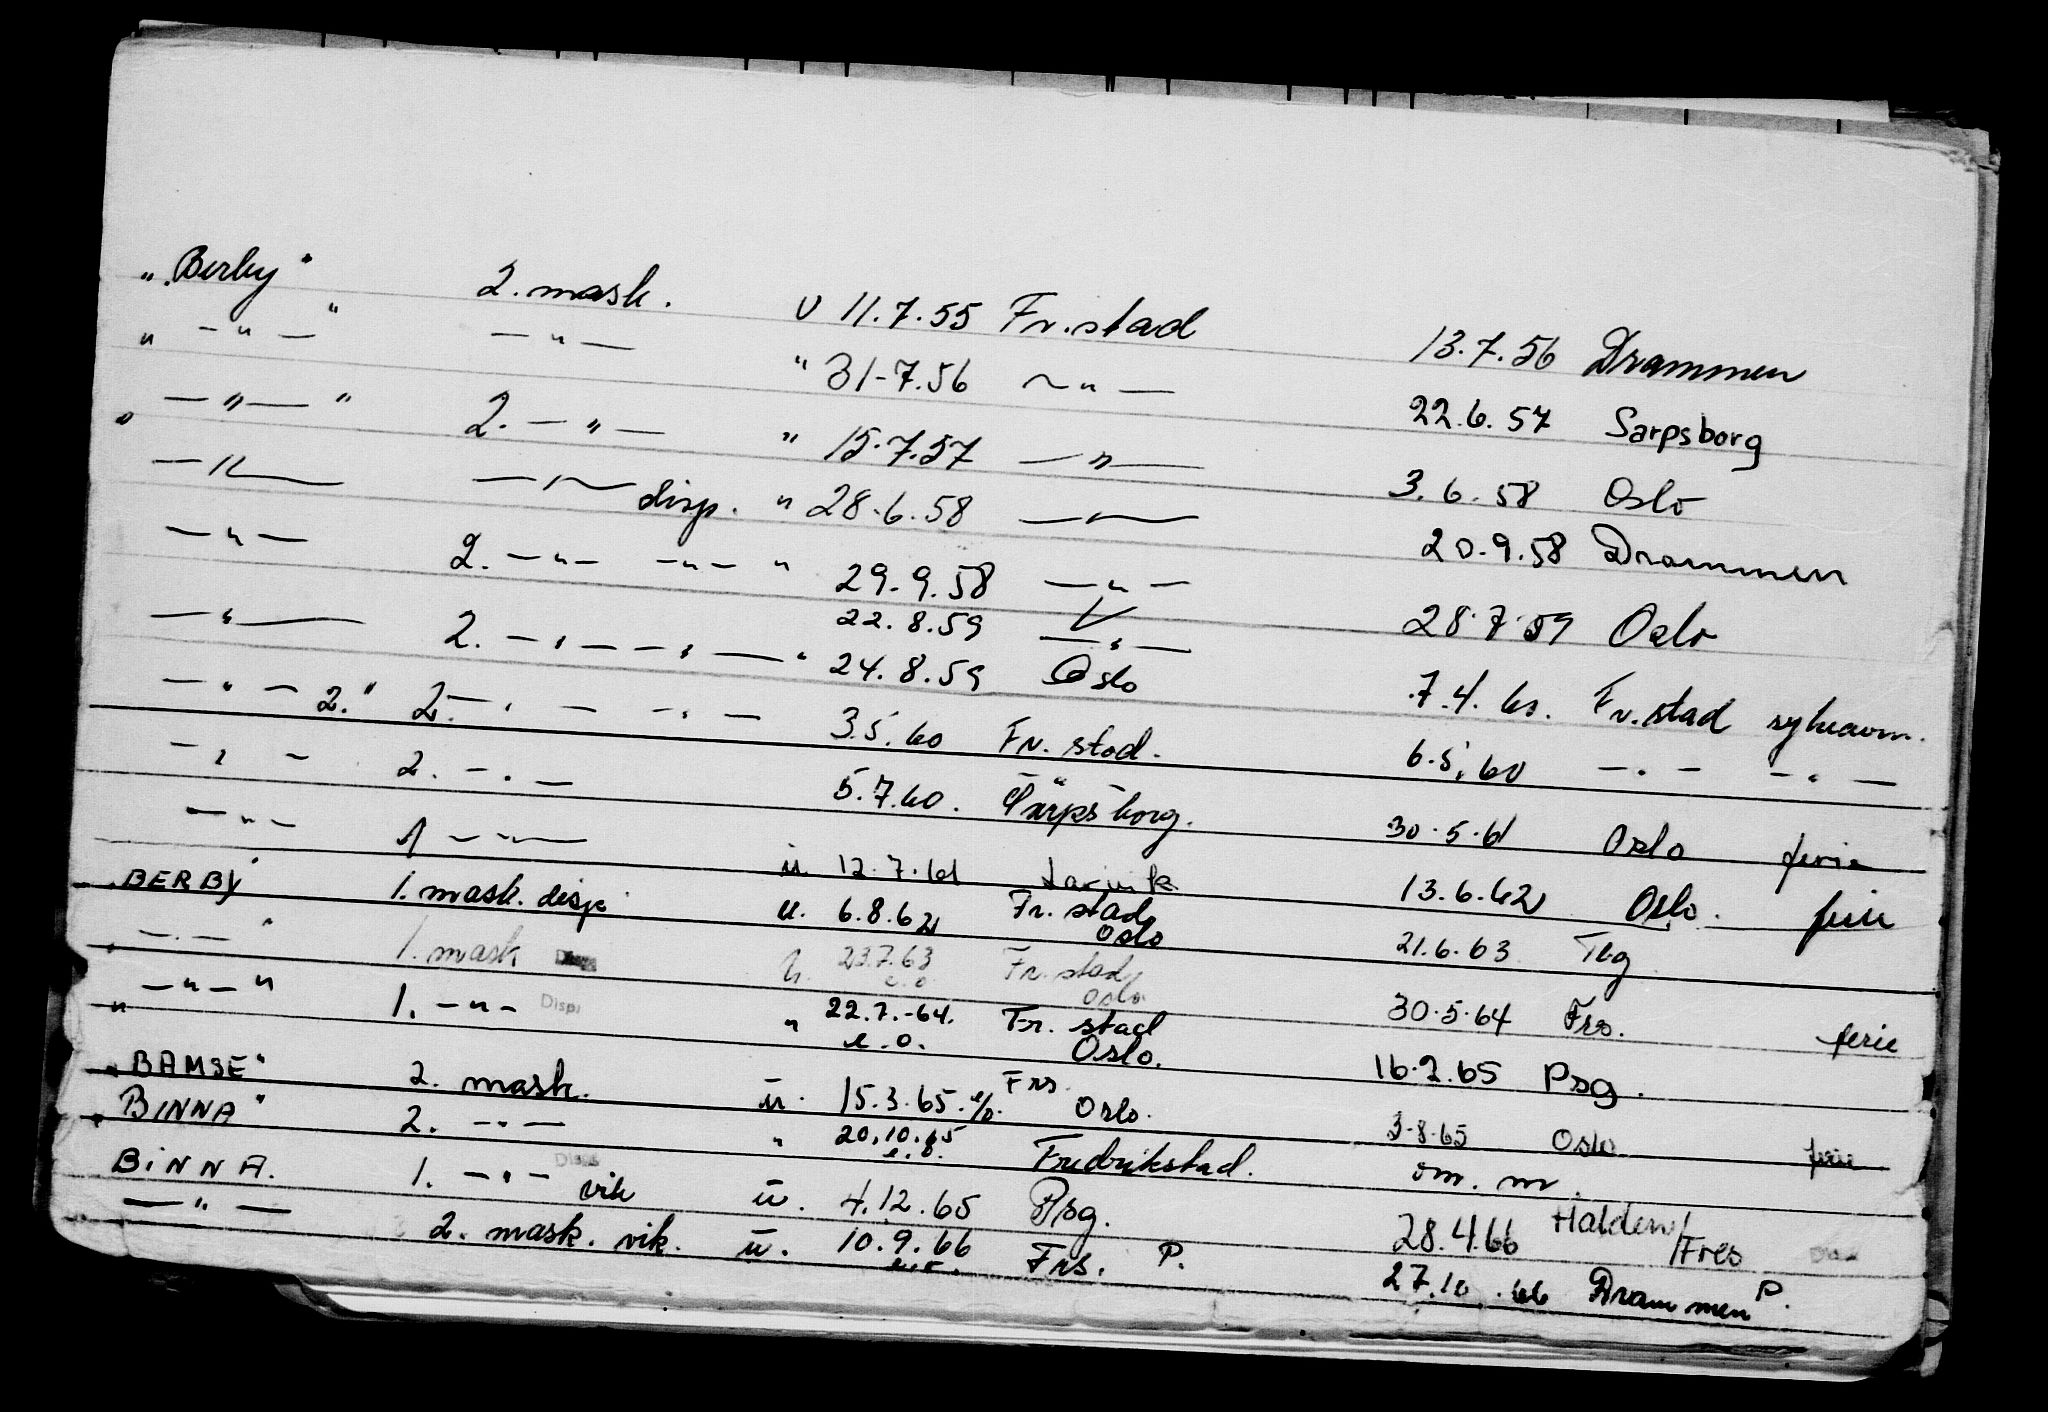 „Berby" 2. mask. u 11.7.55 Fr.stad 13.7.56 Drammen
" — " — " — " — " 31-7.56 — " — 22.6.57 Sarpsborg
" — " — " 2. — " — " 15.7.57 — " — 3.6.58 Oslo
— " — — " — disp. " 28.6.58 — " — 20.9.58 Drammen
— " — 2. — " — — " — " 29.9.58 — " — 28.7.59 Oslo
22.8.59 — " —
— " — 2. — " — — " — " 24.8.59 Oslo 7.4.60. Fr.stad
— " — 2." 2. — " — — " — 3.5.60 Fr.stad. 6.5.60 — " — — " —
— " — 2. — " — 5.7.60. Sarpsborg. 30.5.61 Oslo ferie
— " — 1 — " — u. 12.7.61 Larvik 13.6.62 Oslo. ferie
BERBY" 1. mask. disp u. 6.8.62 Fr.stad Oslo 21.6.63 Tbg
" — " — " 1. mask u. 23.7.63 e.o. Fr.stad Oslo 30.5.64 Frs. ferie
" — " — " 1. — " — Disp. " 22.7.-64. e.o. Fr.stad Oslo. 16.2.65 Psg.
"BAMSE" 2. mask. u. 15.3.65. e/o. Frs Oslo. 3-8-65 Oslo ferie
"BINNA" 2. — " — " 20.10.65 e.o. Fredrikstad. om. m.
BINNA. 1. — " — Disp vik u. 4.12.65 Psg. 28.4.66 Halden/Fres
— " — 2. mask. vik. u. 10.9.66 e.o. Frs. P. 27.10.66 Drammen P.